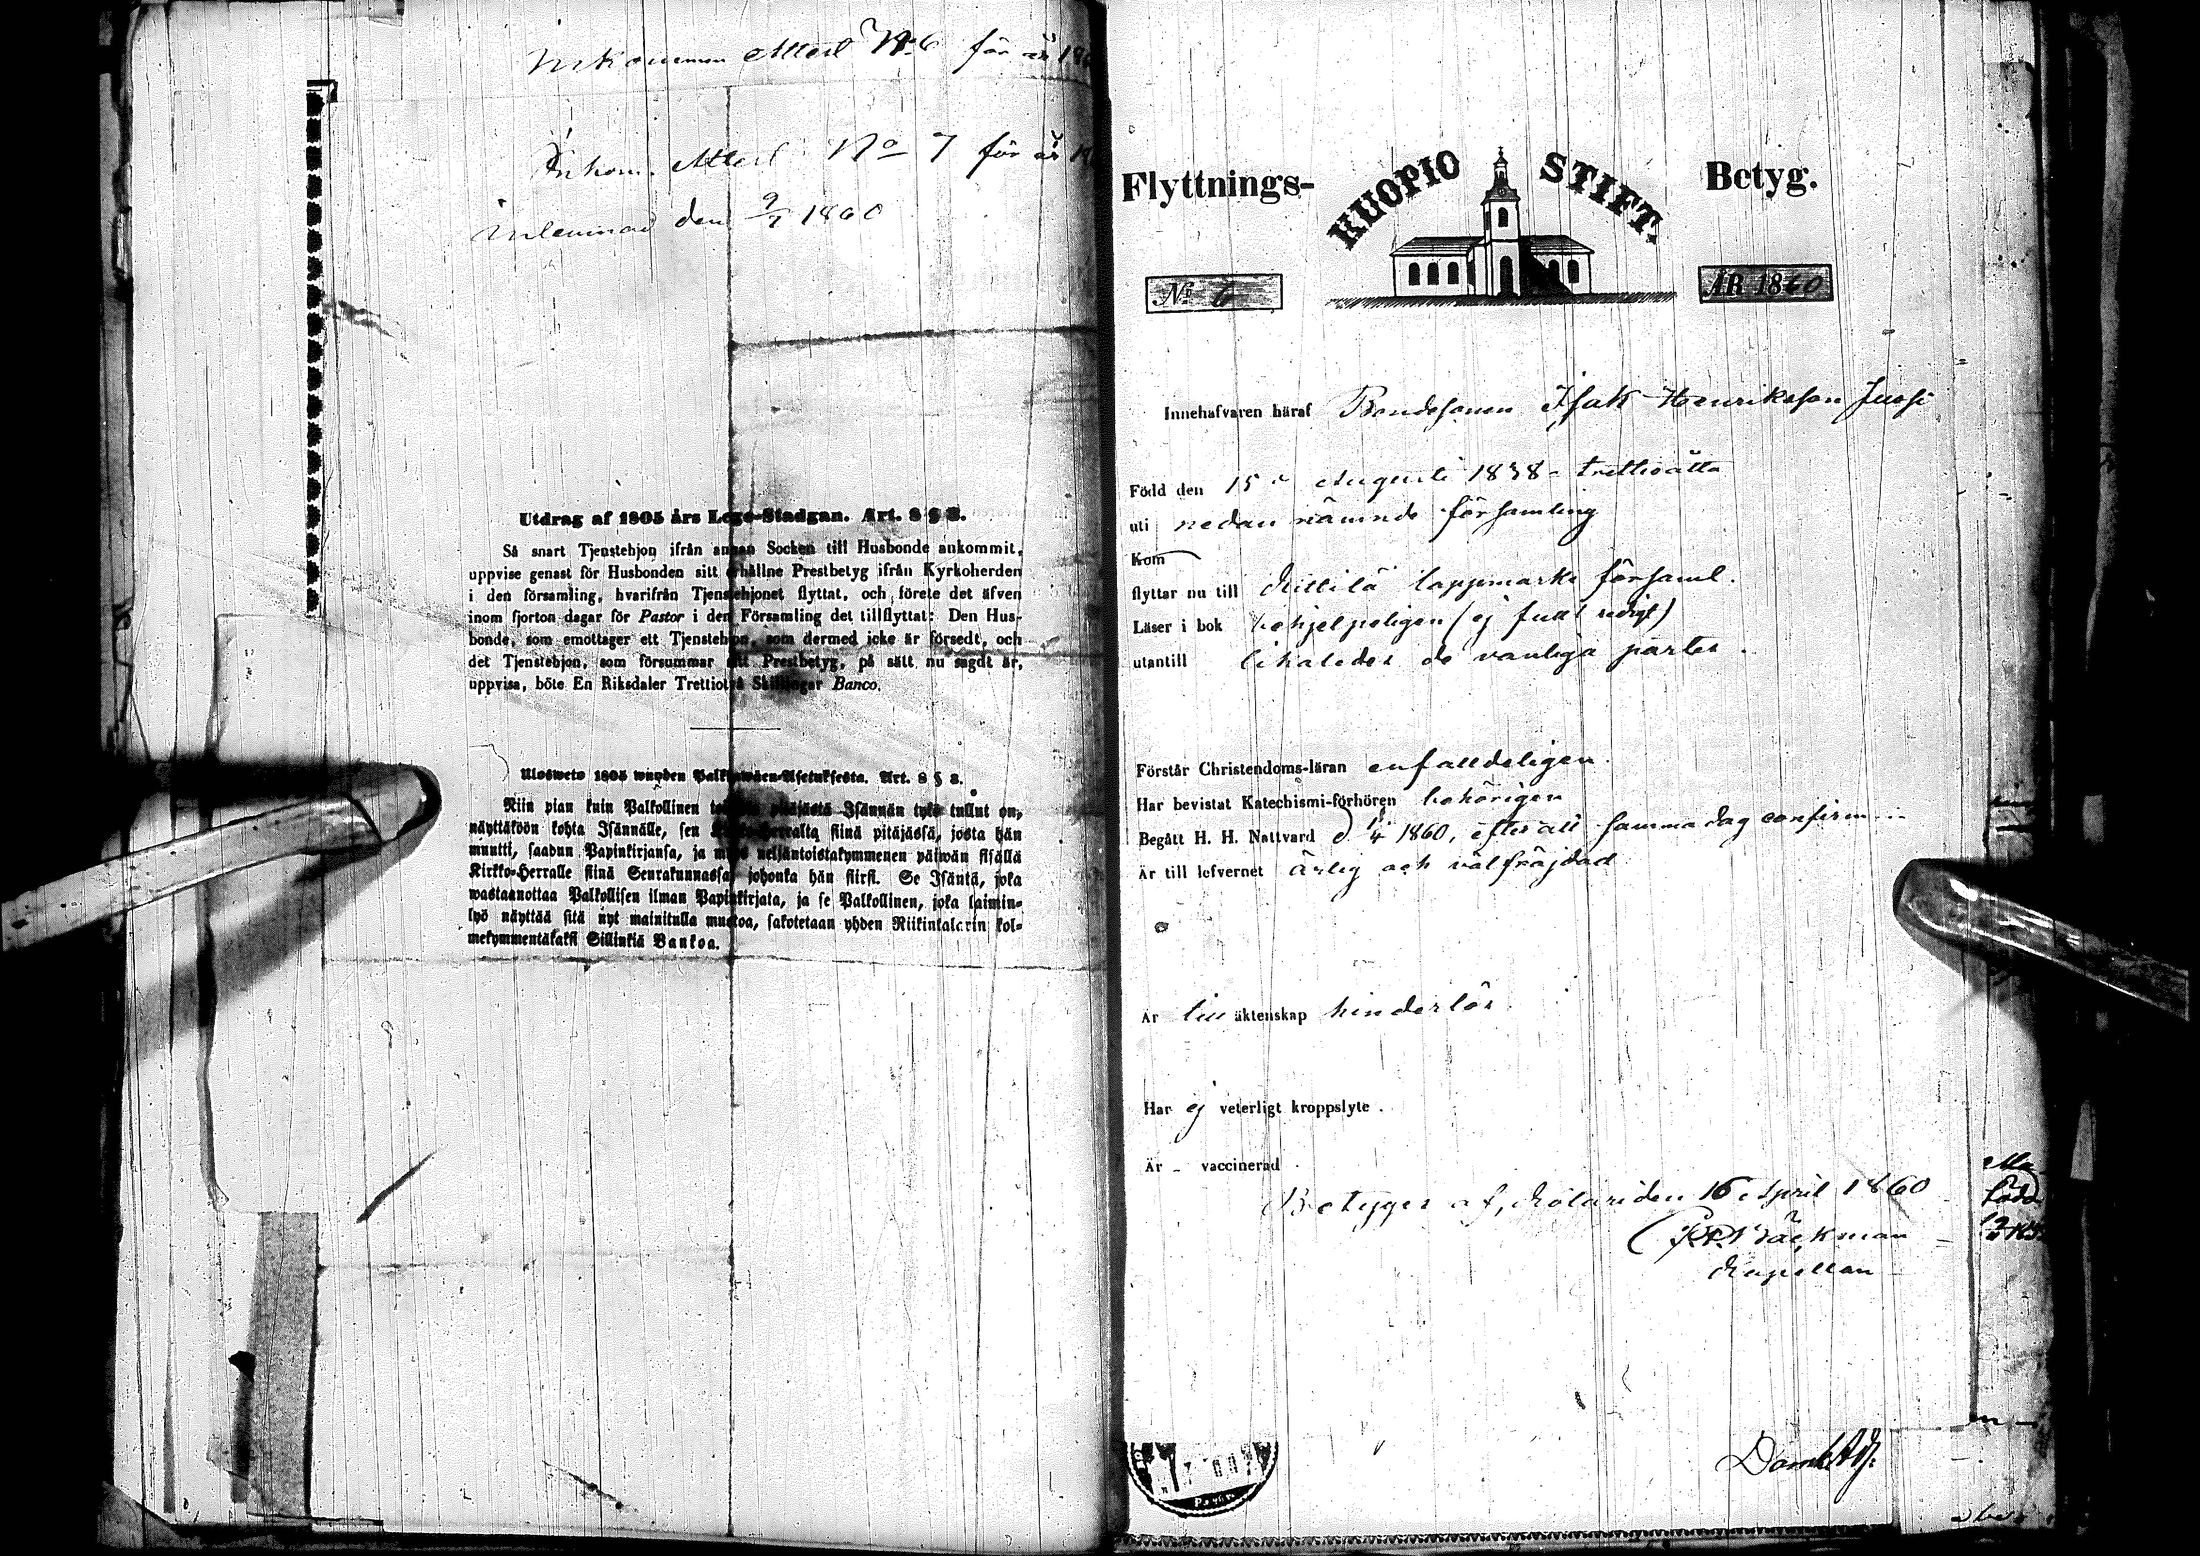 Inkommen Attest No 6 för år 186
Inkom. Attest No 7 för år 18
inlemnad den 9/7 1860
Utdrag af 1805 års Lego-Stadgan. Art. 8 § 8.
Så snart Tjenstehjon ifrån annan Socken till Husbonde ankommit,
uppvise genast för Husbonden sitt erhållne Prestbetyg ifrån Kyrkoherden
i den församling, hvarifrån Tjenstehjonet flyttat, och förete det äfven
inom fjorton dagar för Pastor i den Församling det tillflyttat: Den Hus-
bonde, som emottager ett Tjenstehjon, som dermed icke är försedt, och
det Tjenstehjon, som försummar sitt Prestbetyg, på sätt nu sagdt är,
uppvisa, böte En Riksdaler Trettiotvå Skillingar Banco.
Ulosweto 1805 wuoden Palkkawäen-Asetuksesta. Art. 8 § 8.
Niin pian kuin Palkollinen toisesta pitäjästä Isännän tykö tullut on,
näyttäköön kohta Isännälle, sen Kirkko-Herralta siinä pitäjässä, josta hän
muutti, saadun Papinkirjansa, ja myös neljäntoistakymmenen päiwän sisällä
Kirkko-Herralle siinä Seurakunnassa, johonka hän siirsi. Se Isäntä, joka
wastaanottaa Palkollisen ilman Papinkirjata, ja se Palkollinen, joka laimin-
lyö näyttää sitä nyt mainitulla muotoa, sakotetaan yhden Riikintalarin kol-
mekymmentäkaksi Sillinkiä Bankoa.
Flyttnings- KUOPIO STIFT. Betyg.
No 6 ÅR 1860
Innehafvaren häraf Bondesonen Isak Henriksson Jussi
Född den 15 Augusti 1838 - trettioåtta
uti nedannämnde församling
Kom
flyttar nu till Kittilä lappmarks församl.
Läser i bok behjelpeligen (ej fullt redigt)
utantill likaledes de vanliga parter.
Förstår Christendoms-läran enfalldeligen.
Har bevistat Katechismi-förhören behörigen
Begått H. H. Nattvard d 1/4 1860, efter att samma dag confirm...
Är till lefvernet ärlig och välfräjdad
Är till äktenskap hinderlös.
Har ej veterligt kroppslyte.
Är - vaccinerad
Betygar af, Kolari den 16 April 1860
Bäckman
Kapellan